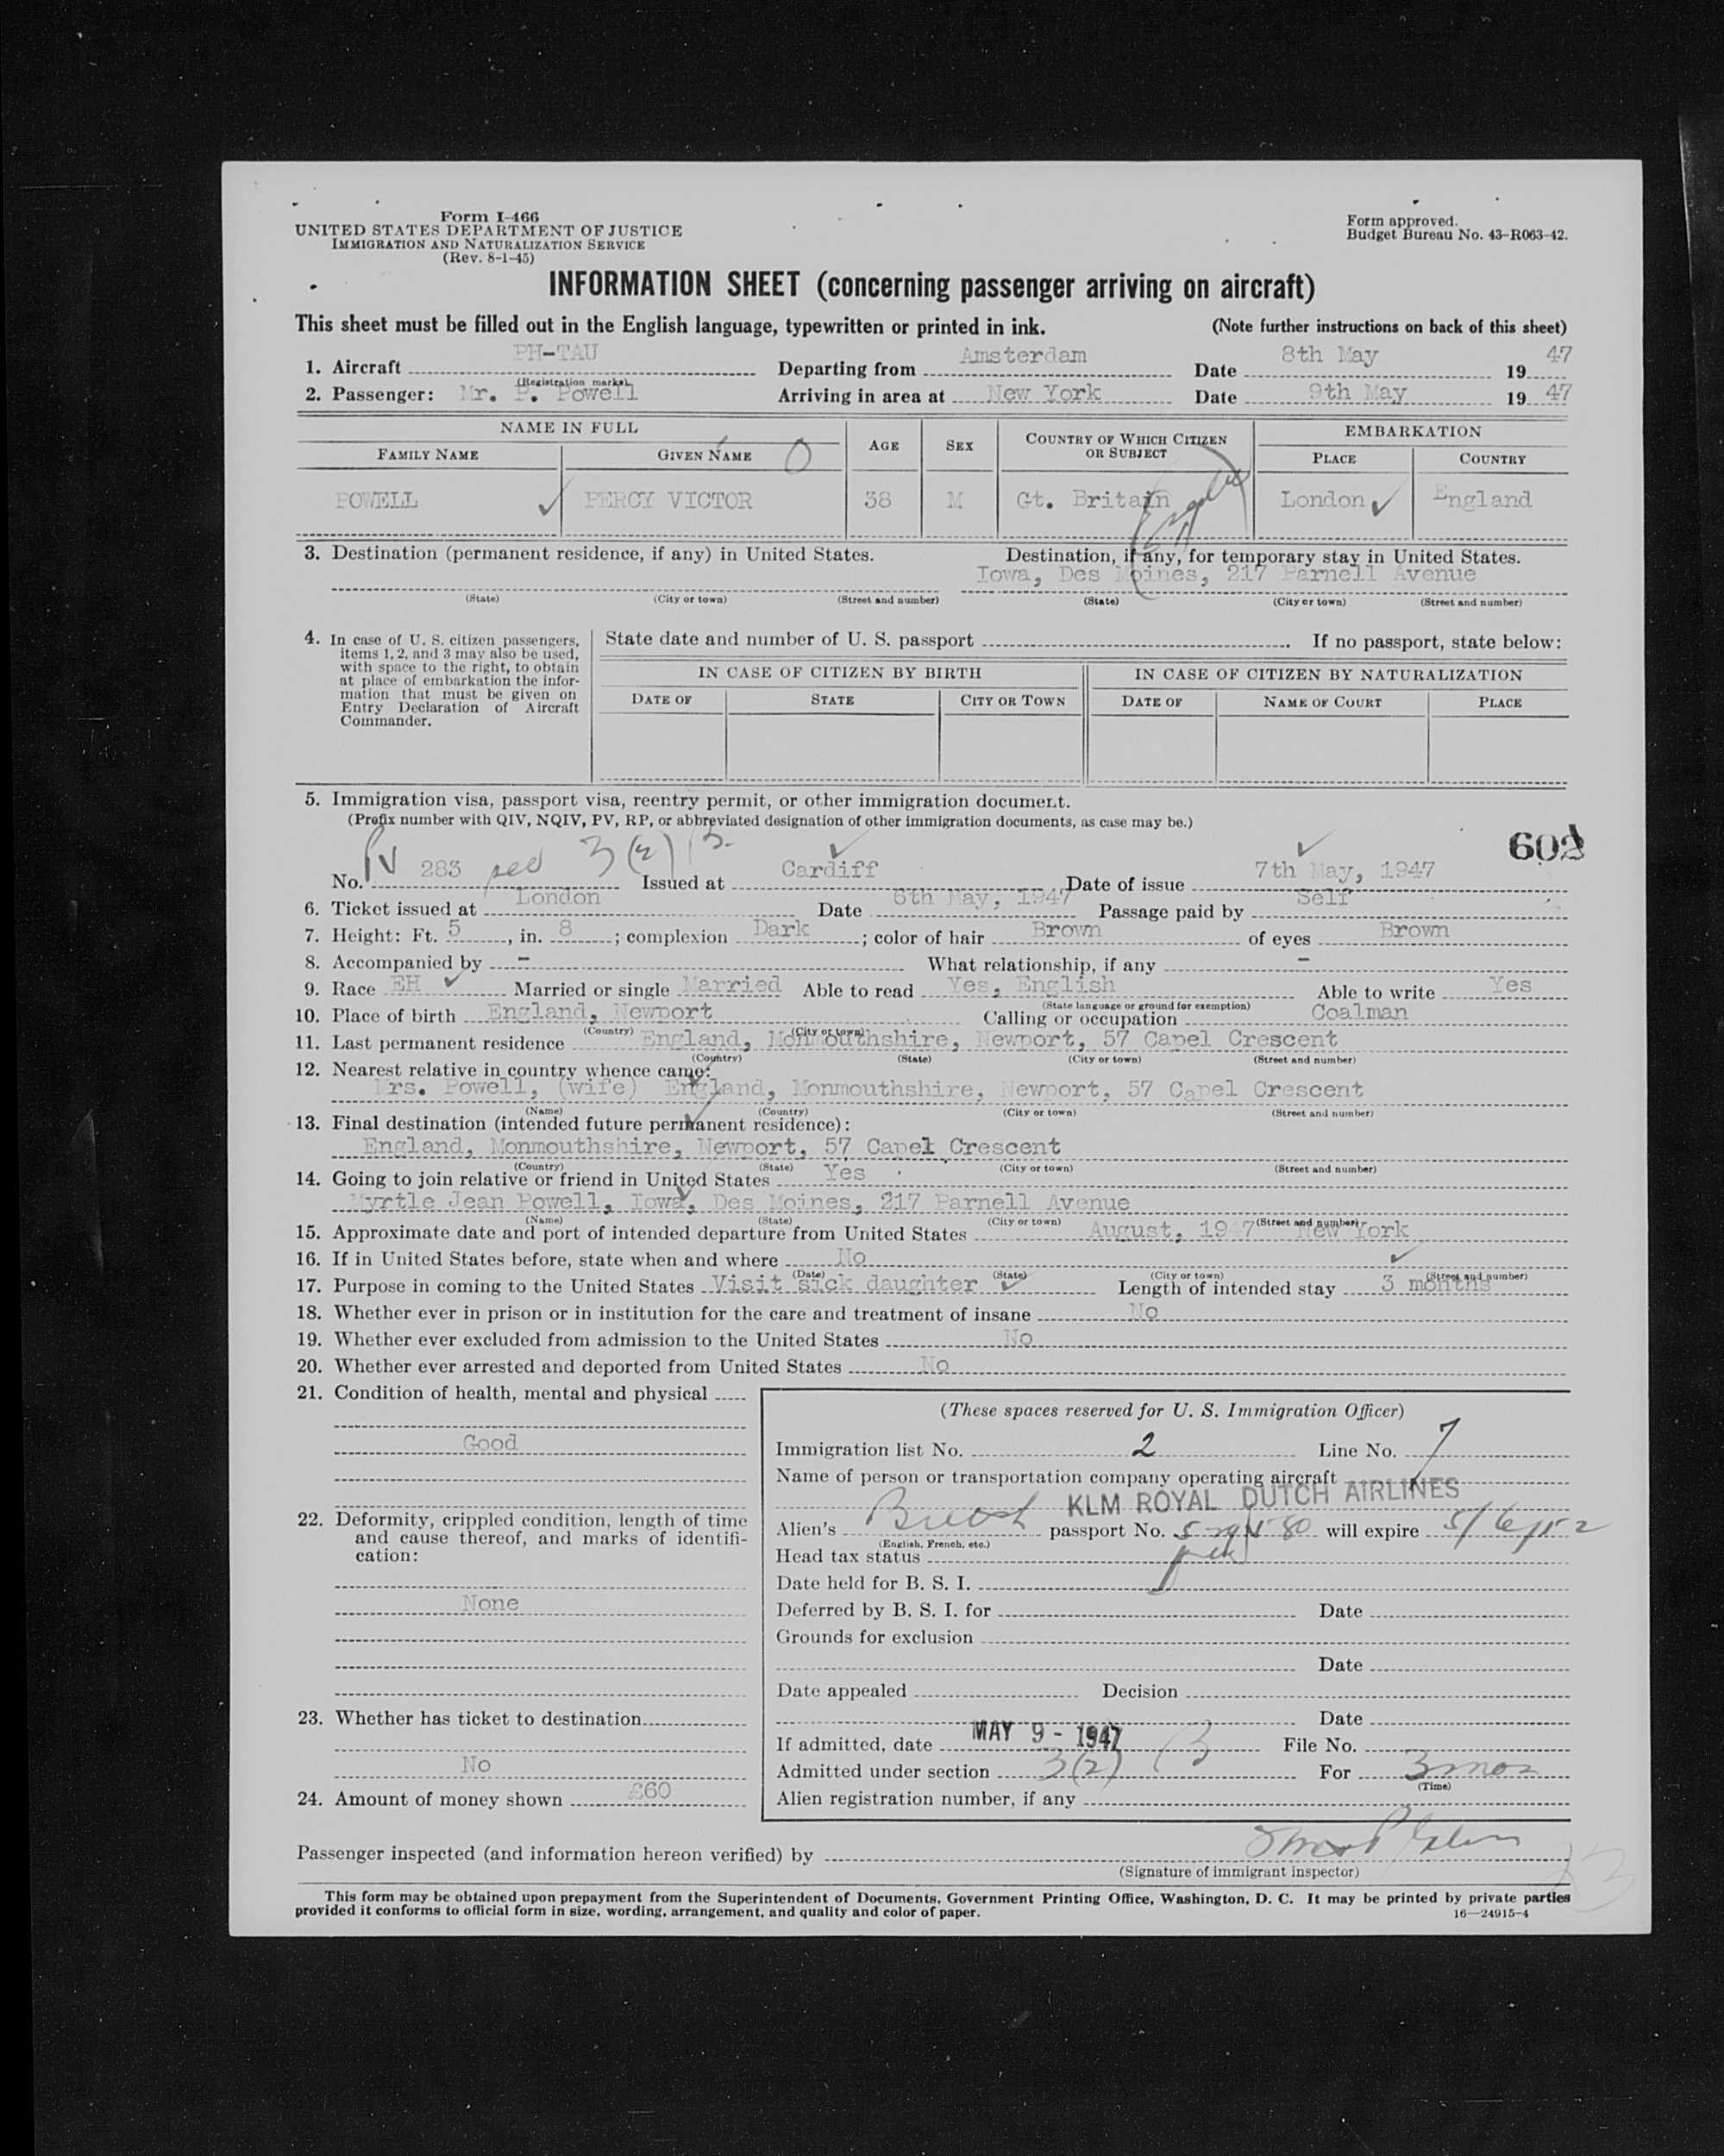 Form I-466
UNITED STATES DEPARTMENT OF JUSTICE
IMMIGRATION AND NATURALIZATION SERVICE
(Rev. 8-1-45)
Form approved.
Budget Bureau No. 43-R063-42.
INFORMATION SHEET (concerning passenger arriving on aircraft)
This sheet must be filled out in the English language, typewritten or printed in ink. (Note further instructions on back of this sheet)
1. Aircraft PH-TAU Departing from Amsterdam Date 8th May 1947
(Registration marks)
2. Passenger: Mr. P. Powell Arriving in area at New York Date 9th May 1947
NAME IN FULL AGE SEX COUNTRY OF WHICH CITIZEN OR SUBJECT EMBARKATION
FAMILY NAME GIVEN NAME PLACE COUNTRY
POWELL PERCY VICTOR 38 M Gt. Britain London England
3. Destination (permanent residence, if any) in United States. Destination, if any, for temporary stay in United States.
Iowa, Des Moines, 217 Parnell Avenue
(State) (City or town) (Street and number) (State) (City or town) (Street and number)
4. In case of U. S. citizen passengers, items 1, 2, and 3 may also be used, with space to the right, to obtain at place of embarkation the information that must be given on Entry Declaration of Aircraft Commander.
State date and number of U. S. passport If no passport, state below:
IN CASE OF CITIZEN BY BIRTH IN CASE OF CITIZEN BY NATURALIZATION
DATE OF STATE CITY OR TOWN DATE OF NAME OF COURT PLACE
5. Immigration visa, passport visa, reentry permit, or other immigration document.
(Prefix number with QIV, NQIV, PV, RP, or abbreviated designation of other immigration documents, as case may be.)
602
No. PV 283 3(2) Issued at Cardiff Date of issue 7th May, 1947
6. Ticket issued at London Date 6th May, 1947 Passage paid by Self
7. Height: Ft. 5, in. 8; complexion Dark; color of hair Brown of eyes Brown
8. Accompanied by - What relationship, if any -
9. Race EH Married or single Married Able to read Yes, English Able to write Yes
(State language or ground for exemption)
10. Place of birth England, Newport Calling or occupation Coalman
(Country) (City or town)
11. Last permanent residence England, Monmouthshire, Newport, 57 Capel Crescent
(Country) (State) (City or town) (Street and number)
12. Nearest relative in country whence came:
Mrs. Powell, (wife) England, Monmouthshire, Newport, 57 Capel Crescent
(Name) (Country) (City or town) (Street and number)
13. Final destination (intended future permanent residence):
England, Monmouthshire, Newport, 57 Capel Crescent
(Country) (State) (City or town) (Street and number)
14. Going to join relative or friend in United States Yes
Myrtle Jean Powell, Iowa, Des Moines, 217 Parnell Avenue
(Name) (State) (City or town) (Street and number)
15. Approximate date and port of intended departure from United States August, 1947 New York
16. If in United States before, state when and where No
(Date) (State) (City or town) (Street and number)
17. Purpose in coming to the United States Visit sick daughter Length of intended stay 3 months
18. Whether ever in prison or in institution for the care and treatment of insane No
19. Whether ever excluded from admission to the United States No
20. Whether ever arrested and deported from United States No
21. Condition of health, mental and physical
Good
22. Deformity, crippled condition, length of time and cause thereof, and marks of identification:
None
23. Whether has ticket to destination
No
24. Amount of money shown £60
(These spaces reserved for U. S. Immigration Officer)
Immigration list No. 2 Line No. 7
Name of person or transportation company operating aircraft
KLM ROYAL DUTCH AIRLINES
Alien's British passport No. will expire 5/6/52
(English, French, etc.)
Head tax status
Date held for B. S. I.
Deferred by B. S. I. for Date
Grounds for exclusion
Date
Date appealed Decision
Date
If admitted, date MAY 9 - 1947 File No.
Admitted under section 3(2) For 3 mos
(Time)
Alien registration number, if any
Passenger inspected (and information hereon verified) by
(Signature of immigrant inspector)
This form may be obtained upon prepayment from the Superintendent of Documents, Government Printing Office, Washington, D. C. It may be printed by private parties
provided it conforms to official form in size, wording, arrangement, and quality and color of paper. 16—24915-4